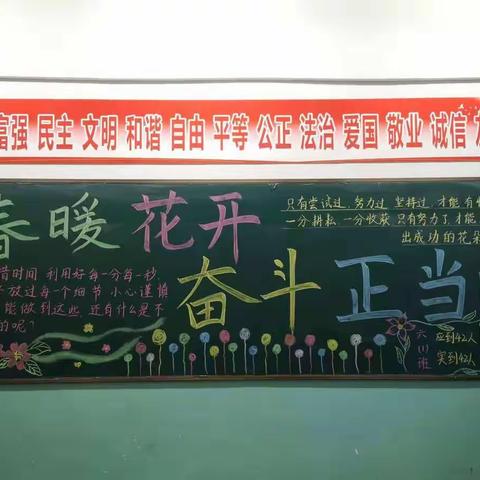 富强 民主 文明 和谐 自由 平等 公正 法治 爱国 敬业 诚信
春暖花开
奋斗正当
只有尝试过,努力过 坚持过,才能有
一分耕耘,一分收获 只有努力了,才能
出成功的花朵
惜时间 利用好每一分每一秒,
放过每一个细节 小心谨慎
能做到这些,还有什么是不
的呢?
六(1)班
应到42人
实到42人